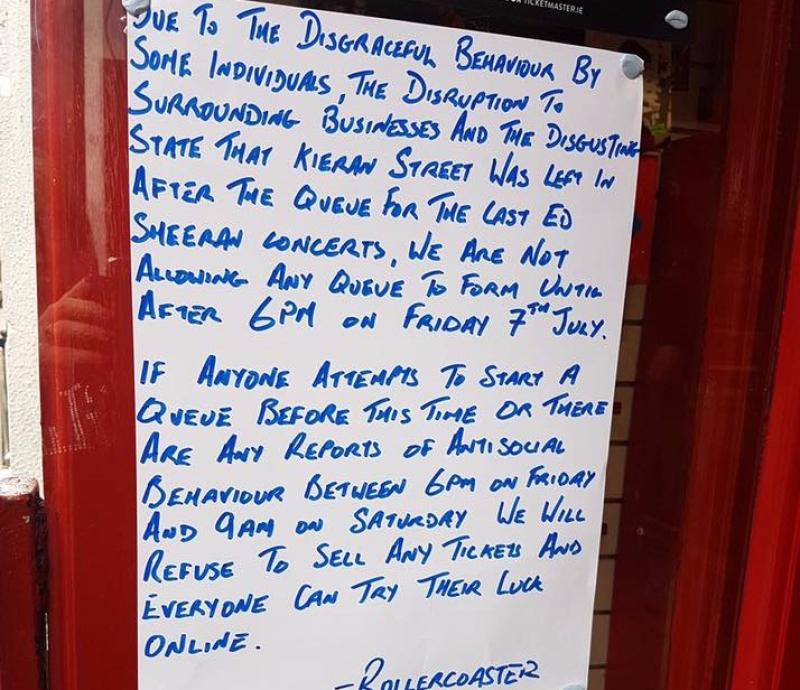 TICKETMASTER.IE
DUE TO THE DISGRACEFUL BEHAVIOUR BY
SOME INDIVIDUALS, THE DISRUPTION TO
SURROUNDING BUSINESSES AND THE DISGUSTING
STATE THAT KIERAN STREET WAS LEFT IN
AFTER THE QUEUE FOR THE LAST ED
SHEERAN CONCERTS, WE ARE NOT
ALLOWING ANY QUEUE TO FORM UNTIL
AFTER 6PM ON FRIDAY 7TH JULY.
IF ANYONE ATTEMPTS TO START A
QUEUE BEFORE THIS TIME OR THERE
ARE ANY REPORTS OF ANTISOCIAL
BEHAVIOUR BETWEEN 6PM ON FRIDAY
AND 9AM ON SATURDAY WE WILL
REFUSE TO SELL ANY TICKETS AND
EVERYONE CAN TRY THEIR LUCK
ONLINE.
-ROLLERCOASTER